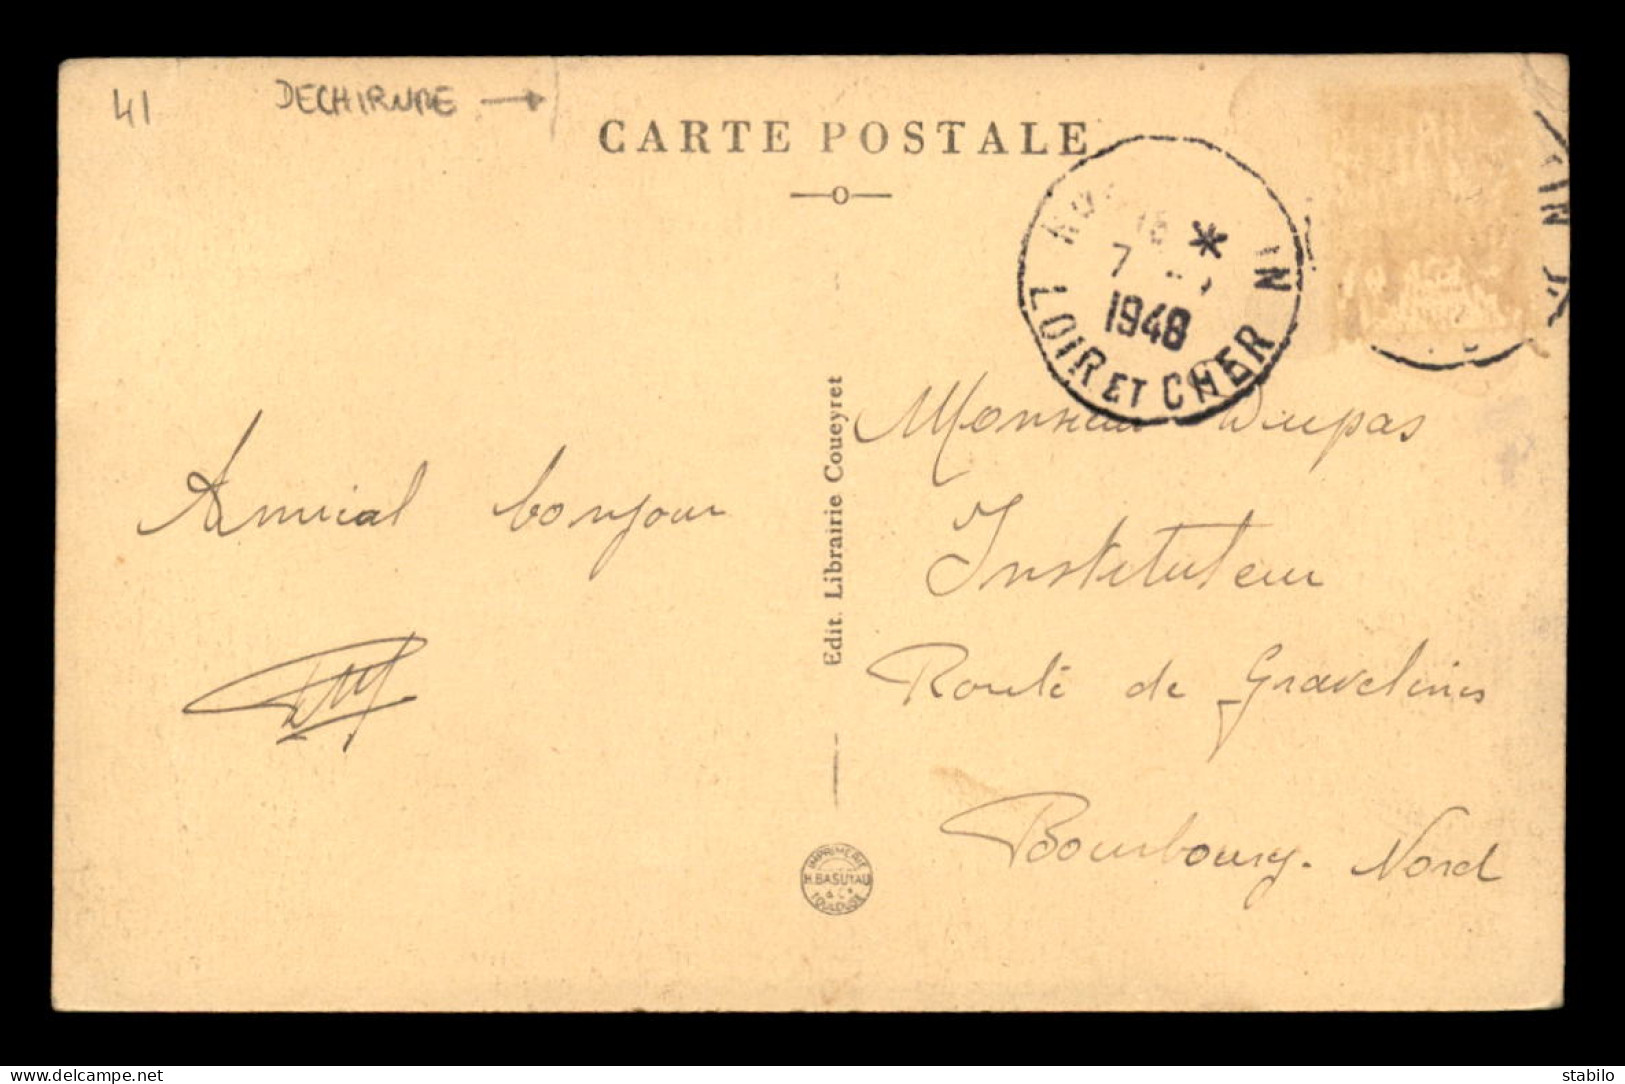 41 DECHIRURE →
CARTE POSTALE
*
7
1948
LOIR ET CHER
Amical bonjour
Edit. Librairie Coueyret
Monsieur Dupas
Instituteur
Route de Gravelines
Bourbourg. Nord
IMPRIMERIE
H. BASUYAU
& Cie
TOULOUSE
Delcampe.net
stabilo